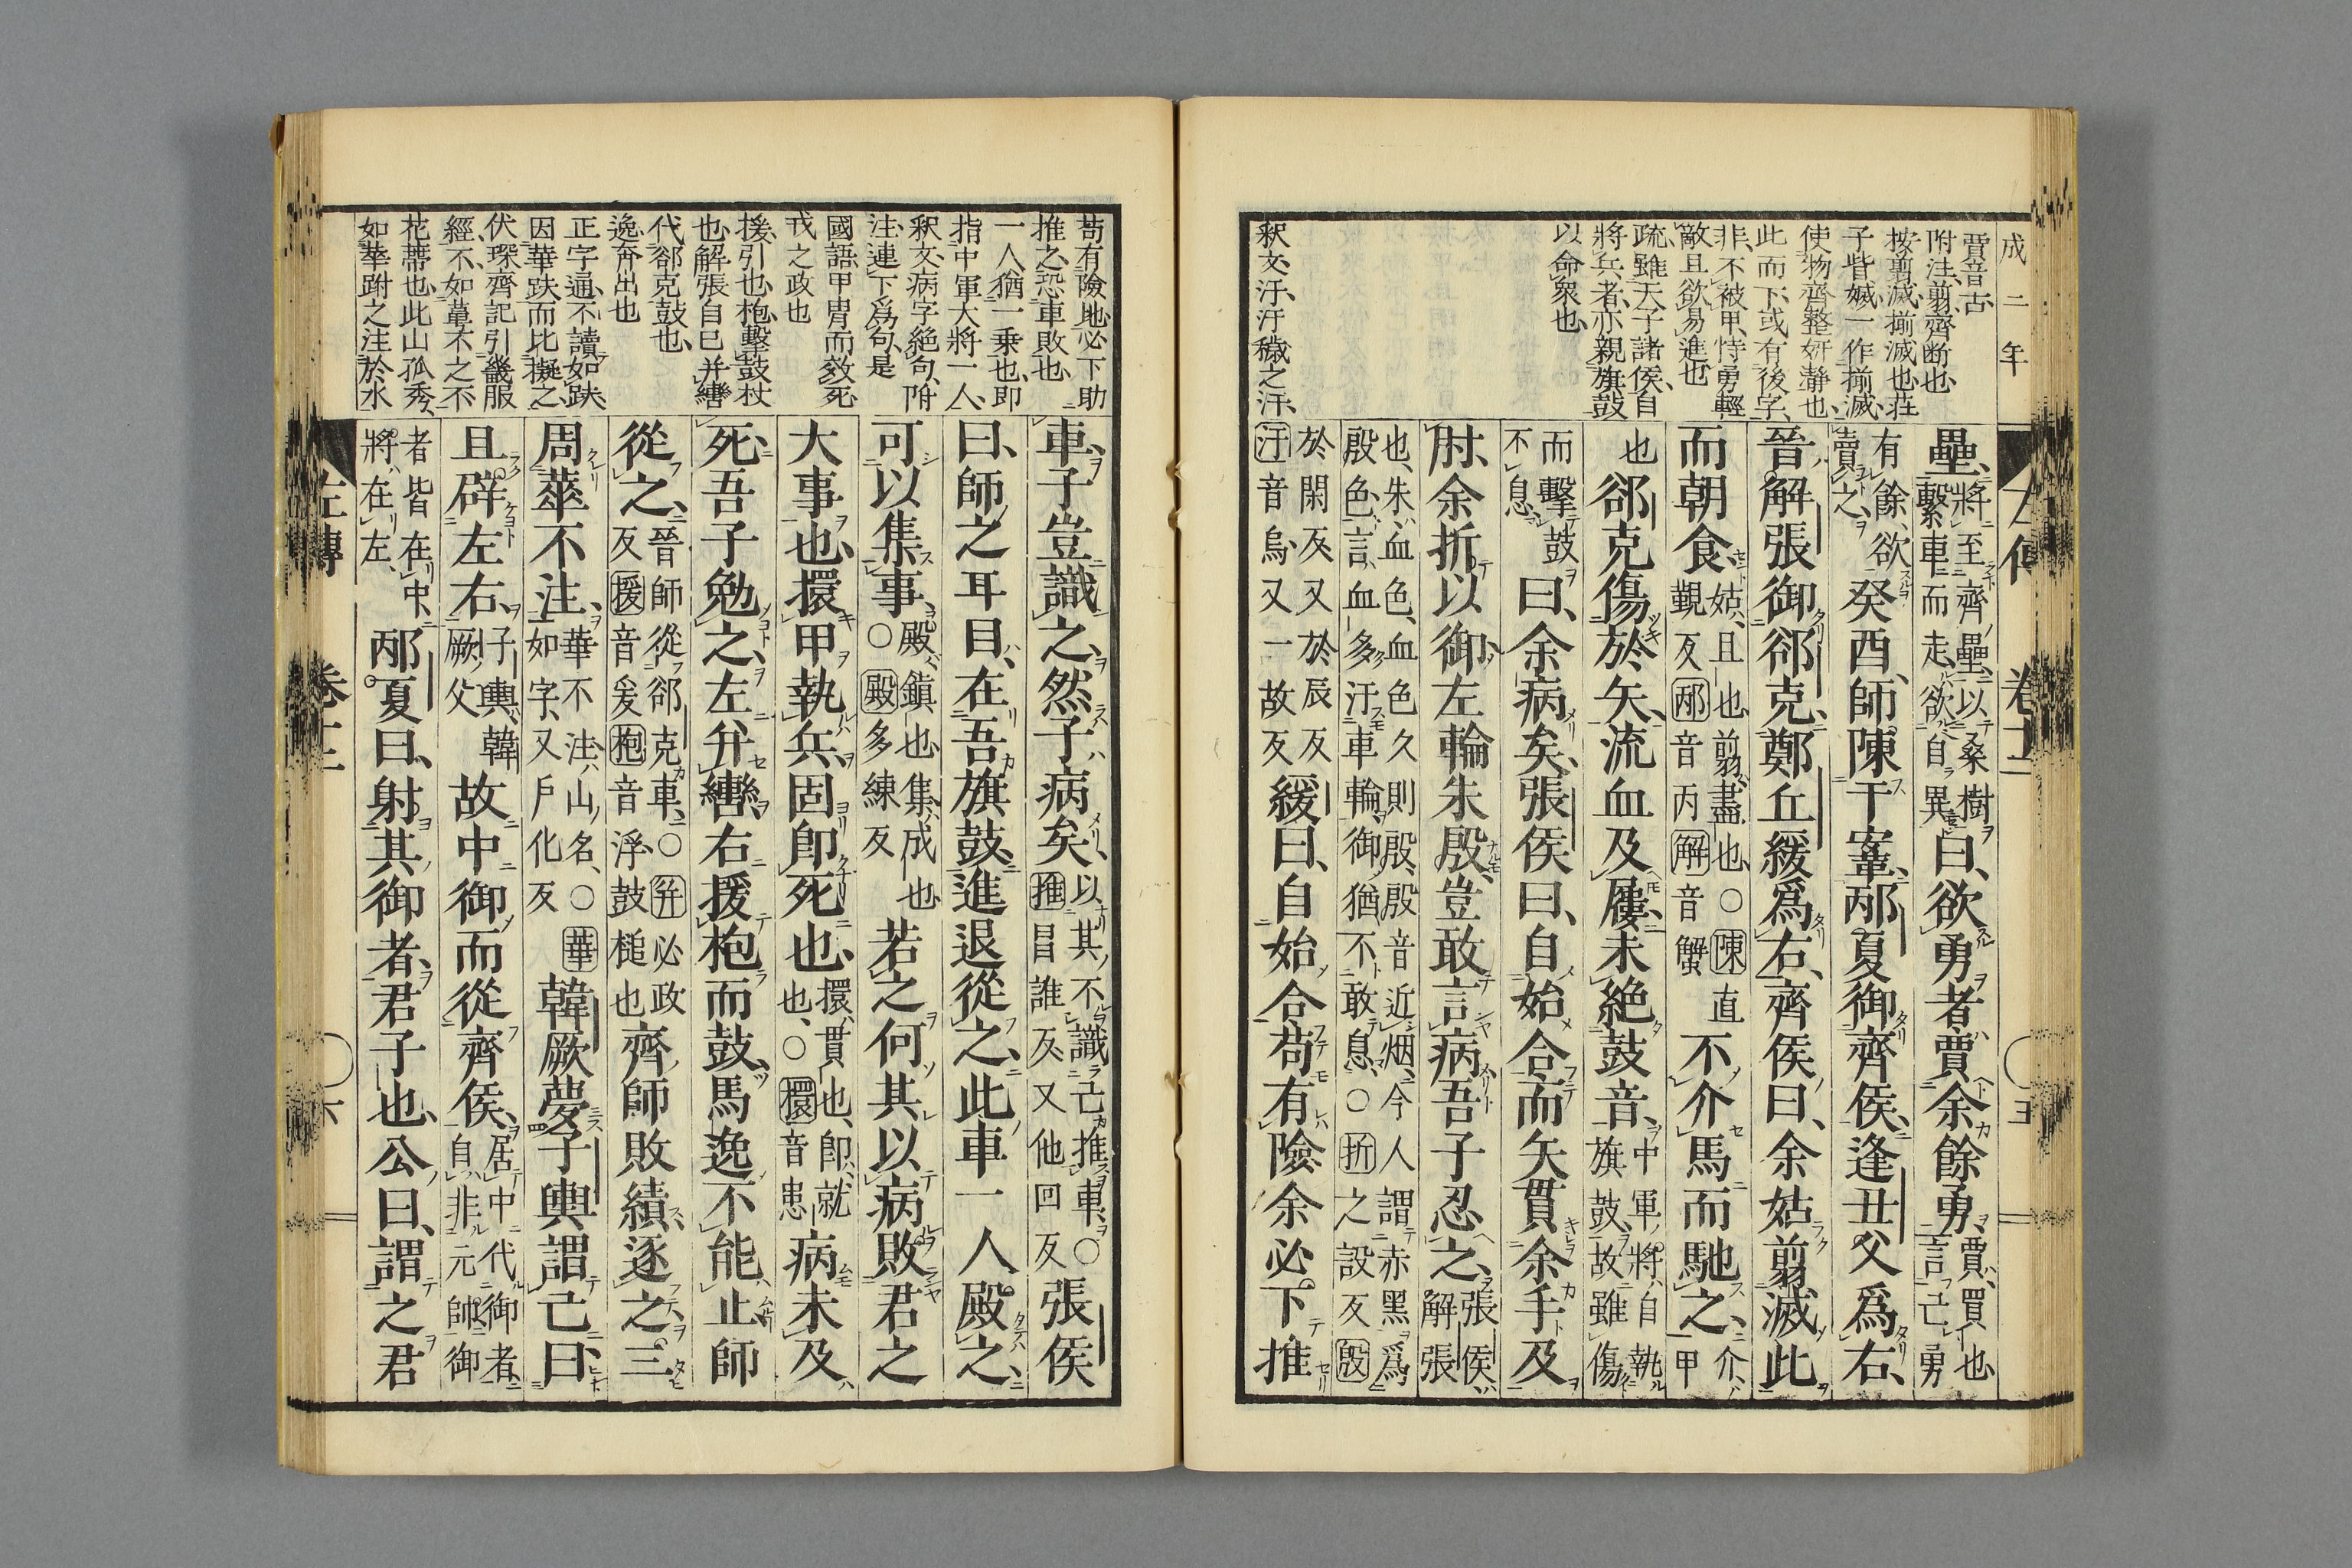 成二年
賈音古
附注翦齊断也
按翦滅揃滅也荘
子皆㛄一作揃滅
使物齊整姸瀞也
此而下或有後字
非不被甲恃勇輕
敵且欲易進也
疏雖天子諸侯自
將兵者亦親旗鼓
以命衆也
釈文汙汙穢之汙
壘將至齊壘以桑樹
繫車而走欲自異曰欲勇者賈余餘勇賈買也
言己勇
有餘欲
賣之癸酉師陳于鞌邴夏御齊侯逢丑父爲右
晉解張御郤克鄭丘緩爲右齊侯曰余姑翦滅此
而朝食姑且也翦盡也○陳直
覲反邴音丙解音蟹不介馬而馳之介
甲
也郤克傷於矢流血及屨未絶鼓音中軍將自執
旗鼓故雖傷
而擊鼓
不息曰余病矣張侯曰自始合而矢貫余手及
肘余折以御左輪朱殷豈敢言病吾子忍之張侯
解張
也朱血色血色久則殷殷音近烟今人謂赤黑爲
殷色言血多汙車輪御猶不敢息○折之設反殷
於閑反又於辰反
汙音烏又一故反緩曰自始合苟有險余必下推
苟有險地必下助
推之恐車敗也
一人猶一乗也即
指中軍大將一人
釈文病字絶句附
注連下爲句是
國語甲冑而效死
戎之政也
援引也枹擊鼓杖
也解張自已并轡
代郤克鼓也
逸奔出也
正字通不讀如跌
因華跌而比擬之
伏琛齊記引畿服
經不如蕚不之不
花蔕也此山孤秀
如華跗之注於水
車子豈識之然子病矣以其不識己推車○
推昌誰反又他回反張侯
曰師之耳目在吾旗鼓進退從之此車一人殿之
可以集事殿鎭也集成也
○殿多練反若之何其以病敗君之
大事也擐甲執兵固即死也擐貫也即就
也○擐音患病未及
死吾子勉之左并轡右援枹而鼓馬逸不能止師
從之晉師從郤克車○并必政
反援音爰枹音浮鼓槌也齊師敗績逐之三
周華不注華不注山名○華
如字又戶化反韓厥夢子輿謂己曰
且辟左右子輿韓
厥父故中御而從齊侯居中代御者
自非元帥御
者皆在中
將在左邴夏曰射其御者君子也公曰謂之君
左傳 卷十二 六